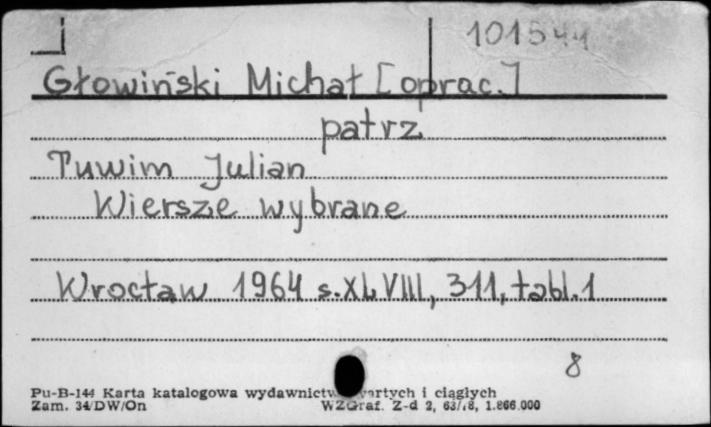 101544
Głowiński Michał [oprac.]
patrz
Tuwim Julian
Wiersze wybrane
Wrocław 1964 s. XLVIII, 311, tabl. 1
8
Pu-B-144 Karta katalogowa wydawnictw i ciągłych
Zam. 34/DW/On WZGraf. Z-d 2, 1.866.000